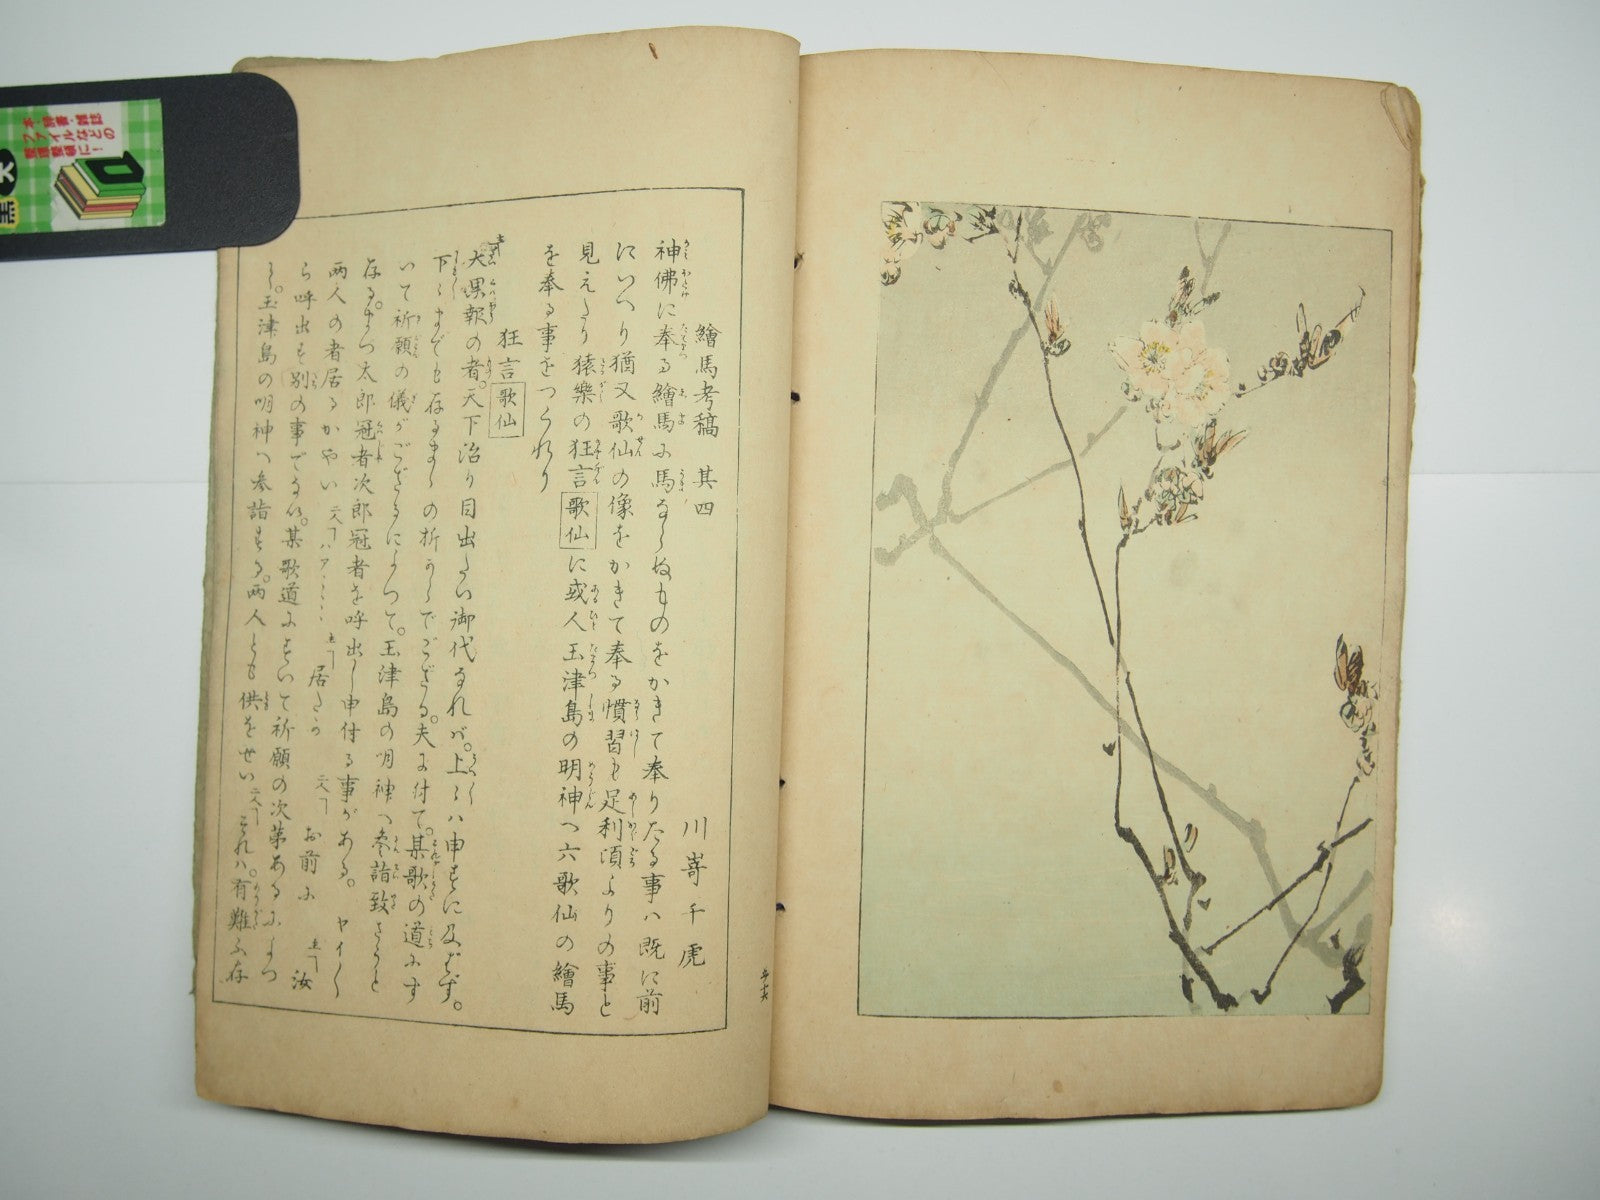 繪馬考稿 其四
川嵜千虎
神佛に奉る繪馬ふ馬ならぬものをかきて奉りたる事ハ既に前
にいへり猶又歌仙の像をかきて奉る慣習も足利頃よりの事と
見えたり猿樂の狂言歌仙に或人玉津島の明神へ六歌仙の繪馬
を奉る事をつくれり
狂言歌仙
大果報の者。天下治り目出たい御代なれバ。上々ハ申すに及ばず。
下々までも存るまゝの折からでござる。夫ふ付て。某歌の道ふす
いて祈願の儀がござるによつて。玉津島の明神へ参詣致さうと
存る。まづ太郎冠者次郎冠者を呼出し申付る事がある。ヤイ〱
両人の者居るかやい
居たか
お前ふ
汝
ら呼出す別の事でない。某歌道ふすいて祈願の次第あるふよつ
て。玉津島の明神へ参詣する。両人とも供をせい
それハ。有難ふ存
本・辞書・雑誌
ファイルなどの
整理整頓に!
大
黒